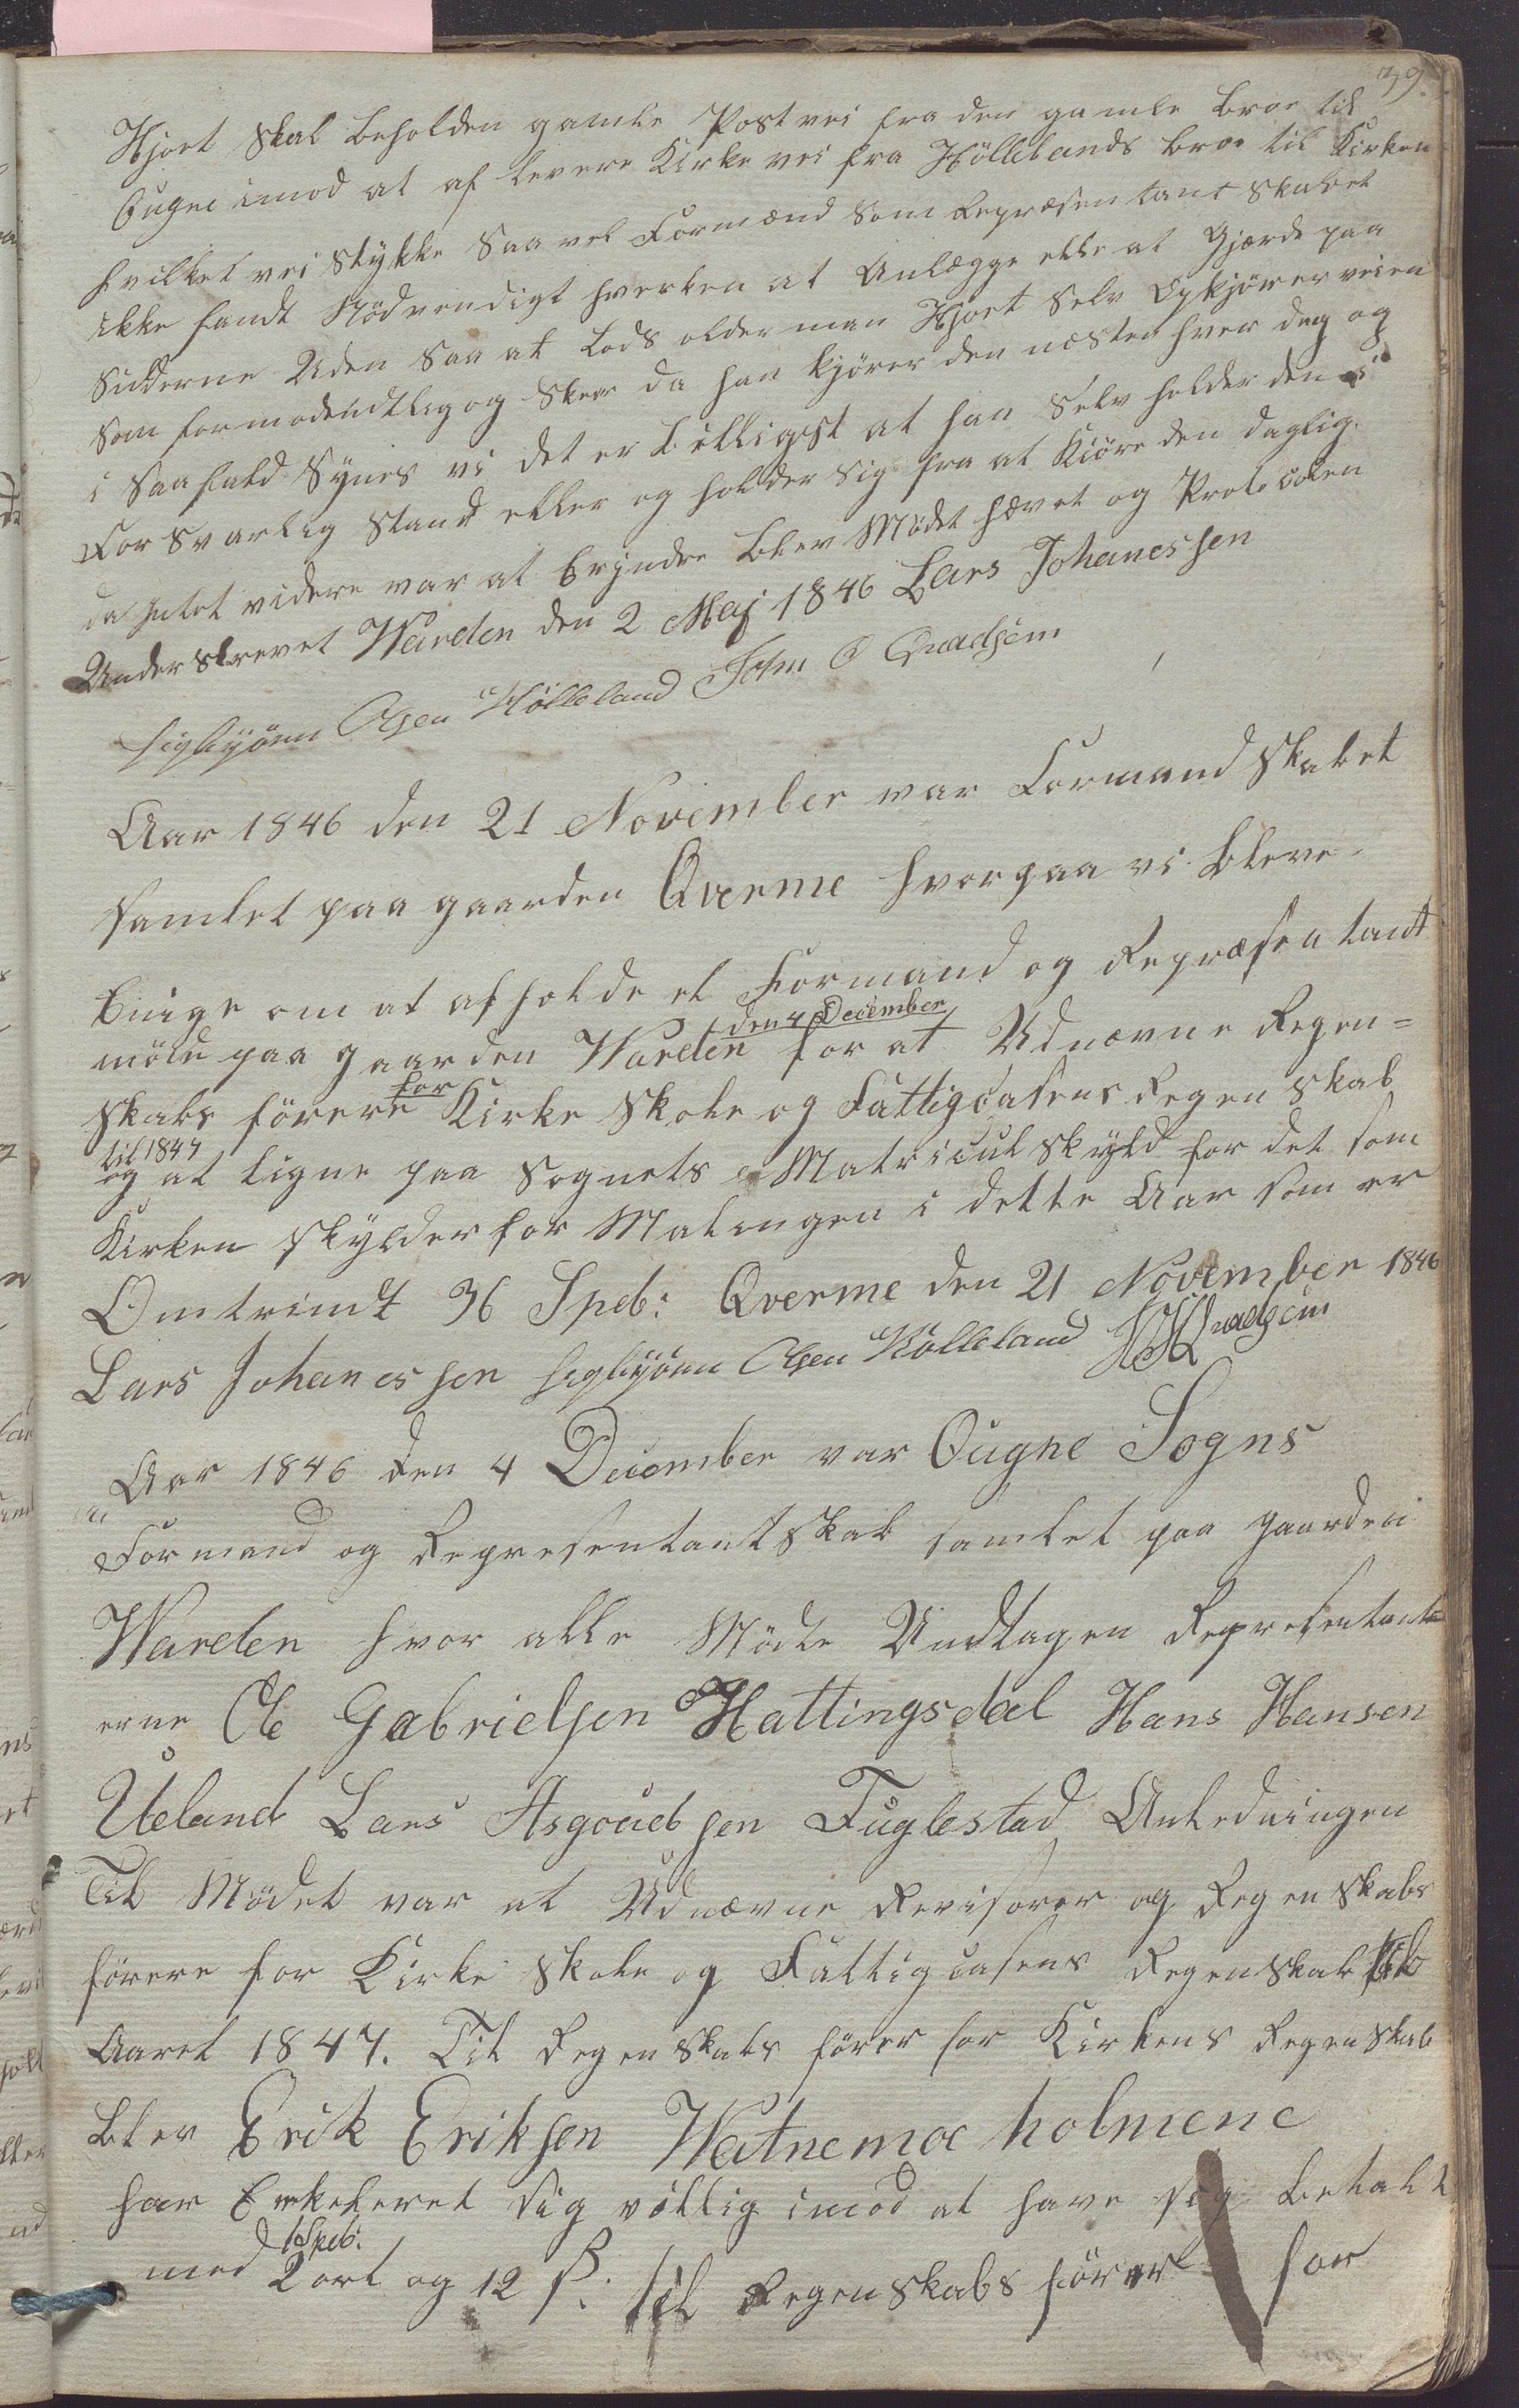 39.
Hjort skal beholden gamle Postvei fra den gamle Broe til
Øugne imod at af levere Kirkevei fra Höllelands broe til Kirken
hvilket vei stykke saavel Formænd som Repræsentantskabet
ikke fandt Nödvendigt hverken at Anlægge elle at Gjærde paa
Sidderne Uden saa at Lods olderman Hjort selv Opkjörer veien
som formodendtlig og Sker da han kjörer den næsten hver dag og
i saafald Synes vi det er billigst at han selv holder den i
Forsvarlig stand eller og holder sig fra at Kiöre den daglig.
da intet videre var at Erindre blev Mödet hævet og Protocolen
Underskrevet Warden den 2 Maj 1846 Lars Johanessen
Sigbjörn Olsen Hölleland John O Qvadsem
Aar 1846 den 21 November var Formandskabet
samlet paa gaarden Qverme hvorpaa vi bleve
Enige om at afholde et Formand og Repræsentant
den 4 December
möde paa gaarden Warden for at Udnævne Regen=
for
skabs förere Kirke Skole og Fattigcasens Regenskab
til 1847
og at ligne paa Sognets Matriculskyld for det som
Kirken skylder for Malingen i dette Aar som er
Omtrindt 36 Spd: Qverme den 21 November 1846
Lars Johanessen Sigbjörn Olsen Hölleland Qvadsem
Aar 1846 den 4 December var Ougne Sogns
Formand og Representantskab samlet paa gaarden
Warden hvor alle Mödte Undtagen Representant
erne Ole Gabrielsen Hattingsdal Hans Hansen
Ueland Lars Asgoudsen Fuglestad Anledningen
Til Mödet var at Udnævne Revisorer og Regenskabs
förere for Kirke Skole og Fattigcasens Regenskab til
Aaret 1847. Til Regenskabs förer for Kirkens Regenskab
blev Erik Eriksen Watnemoe holmene
har Erkeleret sig villig imod at have sig betalt
1 Spd:
med 2 ort og 12 ß. til Regenskabs förer for